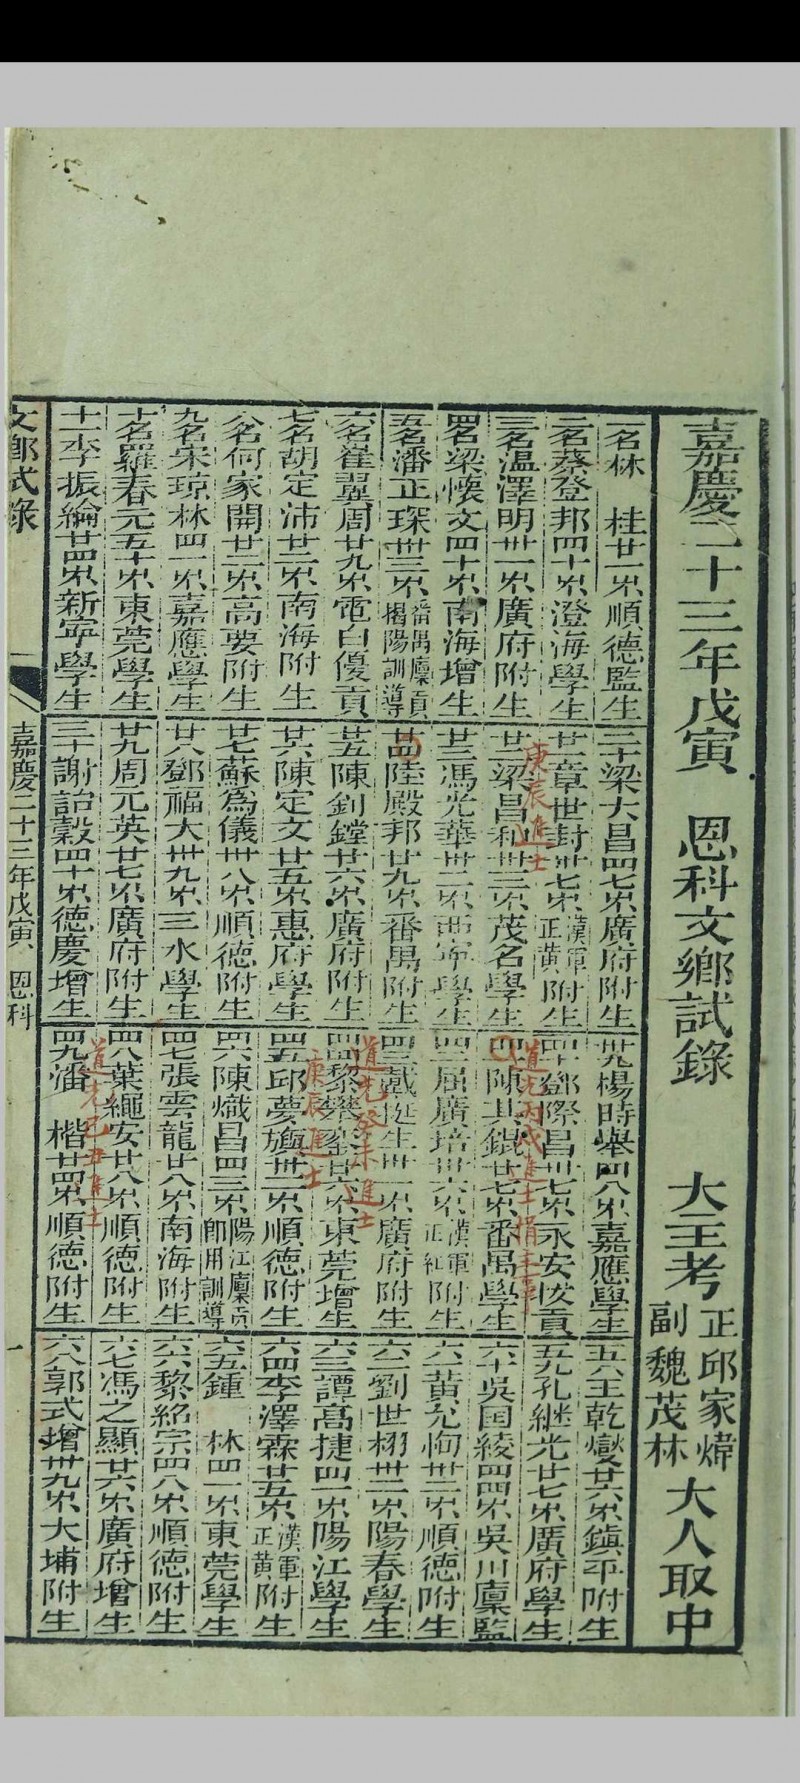 嘉慶二十三年戊寅 恩科文鄉試錄 大主考 正邱家煒 副魏茂林 大人取中
一名林 桂廿一岁順德監生
二名蔡登邦四十岁澄海學生
三名溫澤明卅一岁廣府附生
四名梁懷文四十岁南海增生
五名潘正琛卅三岁番禺廩貢揭陽訓導
六名崔翼周廿九岁電白優貢
七名胡定沛廿二岁南海附生
八名何家開廿二岁高要附生
九名宋琼林四一岁嘉應學生
十名羅春元五十岁東莞學生
十一李振綸廿四岁新寧學生
二十梁大昌四七岁廣府附生
廿一章世封卅七岁漢軍正黃附生
廿二梁昌和卅三岁茂名學生
庚辰進士
廿三馮光華卅二岁西寧學生
廿四陸殿邦廿九岁番禺附生
廿五陳釗鏜廿六岁廣府附生
廿六陳定文廿五岁惠府學生
廿七蘇為儀卅八岁順德附生
廿八鄧福大卅九岁三水學生
廿九周元英廿七岁廣府附生
三十謝詒穀四十岁德慶增生
卅九楊時舉四八岁嘉應學生
四十鄧際昌卅七岁永安拔貢
四一陳其錕廿七岁番禺學生
道光丙戌進士
四二屈廣培卅六岁漢軍正紅附生
四三戴挺生卅一岁廣府附生
四四黎攀鏐廿六岁東莞增生
道光癸未進士
四五邱夢旟卅二岁順德附生
庚辰進士
四六陳熾昌四三岁陽江廩貢即用訓導
四七張雲龍廿八岁南海附生
四八葉繩安廿八岁順德附生
四九潘 楷廿四岁順德附生
道光己丑進士
五八王乾燮廿六岁鎮平附生
五九孔継光廿七岁廣府學生
六十吳国綾四四岁吳川廩監
六一黃允恂卅二岁順德附生
六二劉世栩卅二岁陽春學生
六三譚高捷四一岁陽江學生
六四李澤霖廿五岁漢軍正黃附生
六五鍾 林四一岁東莞學生
六六黎紹宗四八岁順德附生
六七馮之顯廿六岁廣府增生
六八郭式增卅九岁大埔附生
文鄉試錄 嘉慶二十三年戊寅 恩科 一